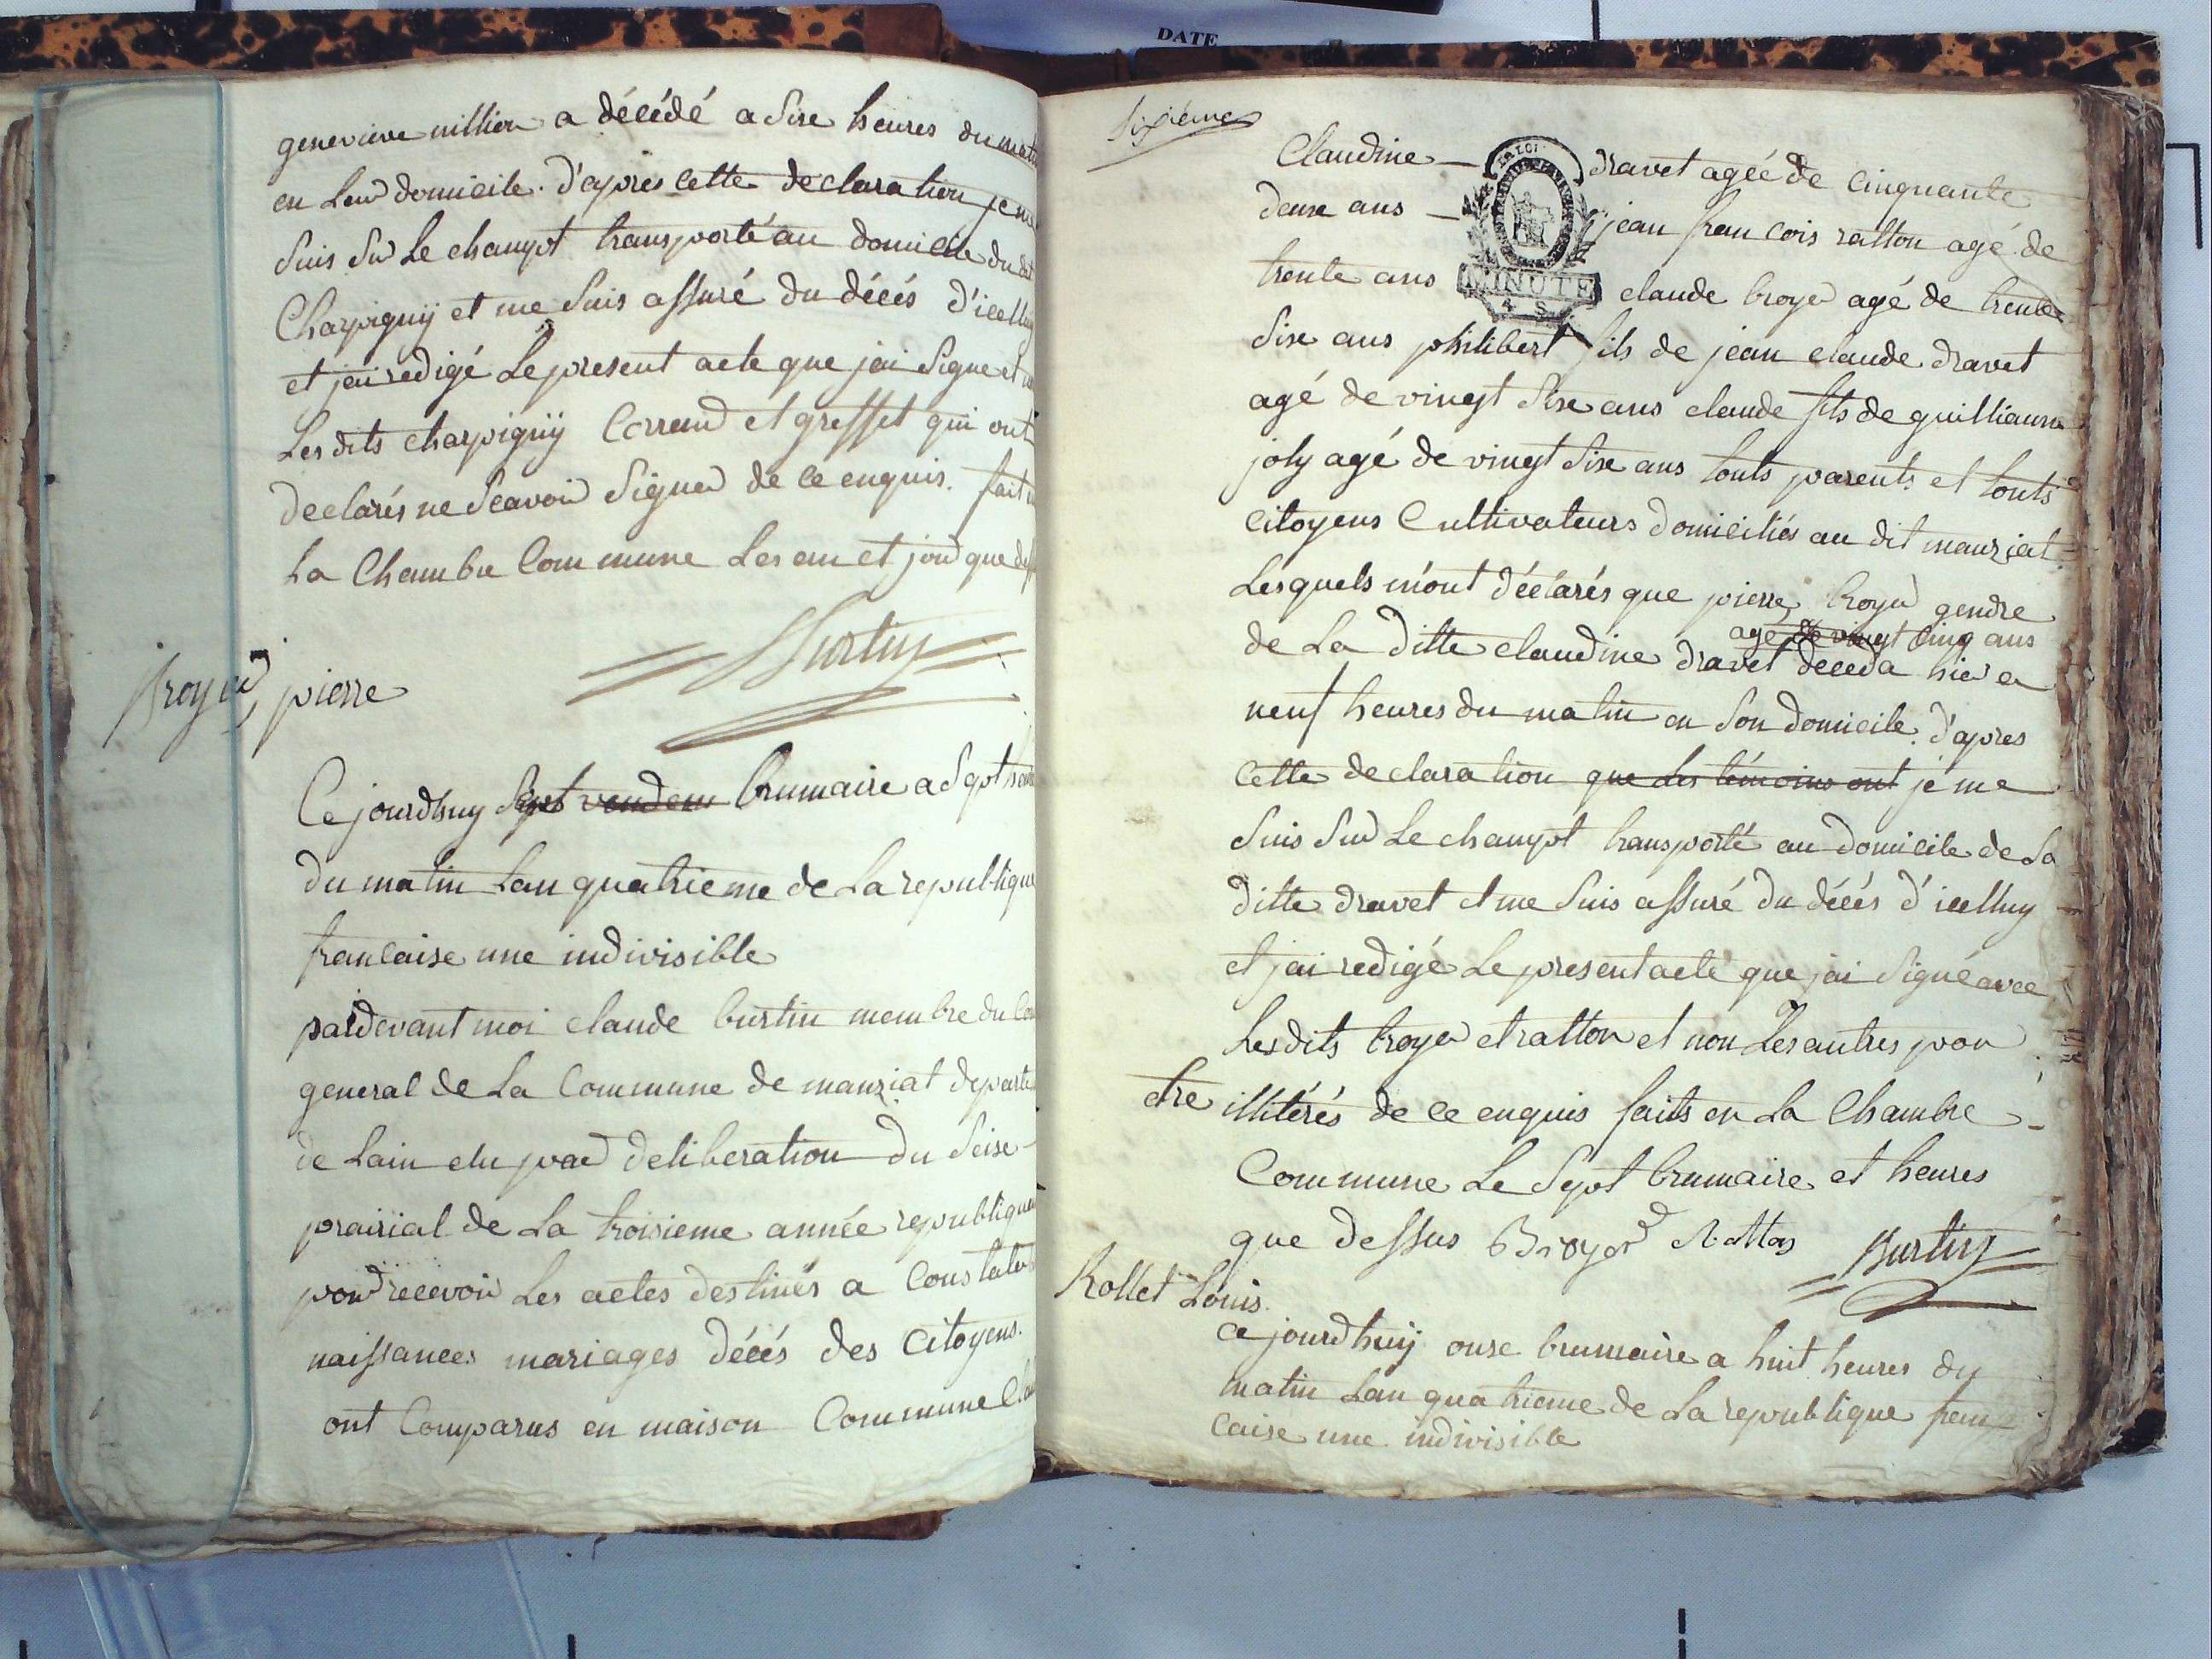 DATE
genevieve million a décédé a Sixe heures du matin
en Leur domicile. D'apres cette declaration je me
Suis Sur Le champt transporté au domicile du dit
Charpiguÿ et me Suis assuré du décés d'icelluy
et jai redigé Le present acte que jai Signe et
Les dits charpiguÿ Corrand et greffet qui ont
declarés ne Scavoir Signer de ce enquis. fait
La Chambre Commune Les an et jour que
Burtin
Broyer, pierre
Ce jourdhuy Sept vendem brumaire a Sept heures
du matin Lan quatrieme de La republique
francaise une indivisible
pardevant moi claude burtin membre du
general de La Commune de manziat departe
de Lain elu par deliberation du Seise
prairial de La troisieme année republique
pour recevoir Les actes destinés a Constater
naissances mariages décés des Citoyens.
ont Comparus en maison Commune
sixieme
Claudine dravet agée de cinquante
deux ans jean francois ratton agé de
trente ans claude broyer agé de trente
LA LOI
MINUTE
4 S
Sixe ans philibert fils de jean claude dravet
agé de vingt Sixe ans claude fils de guilliaume
joly agé de vingt Sixe ans touts parents et touts
citoyens Cultivateurs domiciliés au dit manziat
Lesquels m'ont déclarés que pierre broyer gendre
agé de vingt cinq ans
de La ditte claudine dravet deceda hier a
neuf heures du matin en Son domicile. D'apres
cette declaration que Les témoins ont je me
Suis Sur Le champt transporté au domicile de La
ditte dravet et me Suis assuré du décés d'icelluy
et jai redigé Le present acte que jai Signé avec
Lesdits broyer et ratton et non Les autres pour
etre illitérés de ce enquis faits en La Chambre
Commune Le Sept brumaire et heures
que dessus Broyer Ratton Burtin
Rollet Louis.
ce jourdhuÿ onse brumaire a huit heures du
matin Lan quatrieme de La republique fran
caise une indivisible